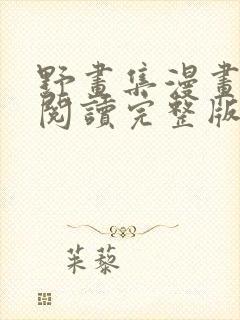 野畫集漫畫
閱讀完整版
茱藜